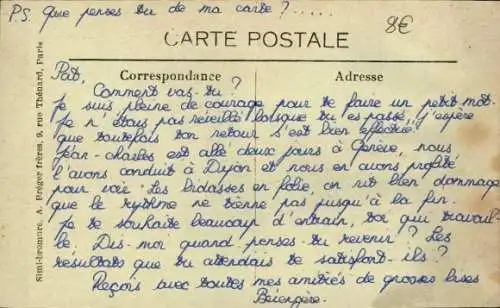 P.S. Que penses tu de ma carte ?.....
8€
CARTE POSTALE
Correspondance
Adresse
Pat,
Comment vas-tu ?
Je suis pleine de courage pour te faire un petit mot.
Je n'étais pas réveillé lorsque tu es passé. J'espère
que toutefois ton retour s'est bien effectué.
Jean-charles est allé deux jours à Genève, nous
l'avons conduit à Dijon et nous en avons profité
pour voir "Les bidasses en folie", on rit bien dommage
que le rythme ne tienne pas jusqu'à la fin.
Je te souhaite beaucoup d'entrain, toi qui travail-
le. Dis-moi quand penses-tu revenir ? Les
résultats que tu attendais te satisfont-ils ?
Reçois avec toutes mes amitiés de grosses bises
Bérengère.
Simili-bromure. A. Breger frères, 9, rue Thénard, Paris